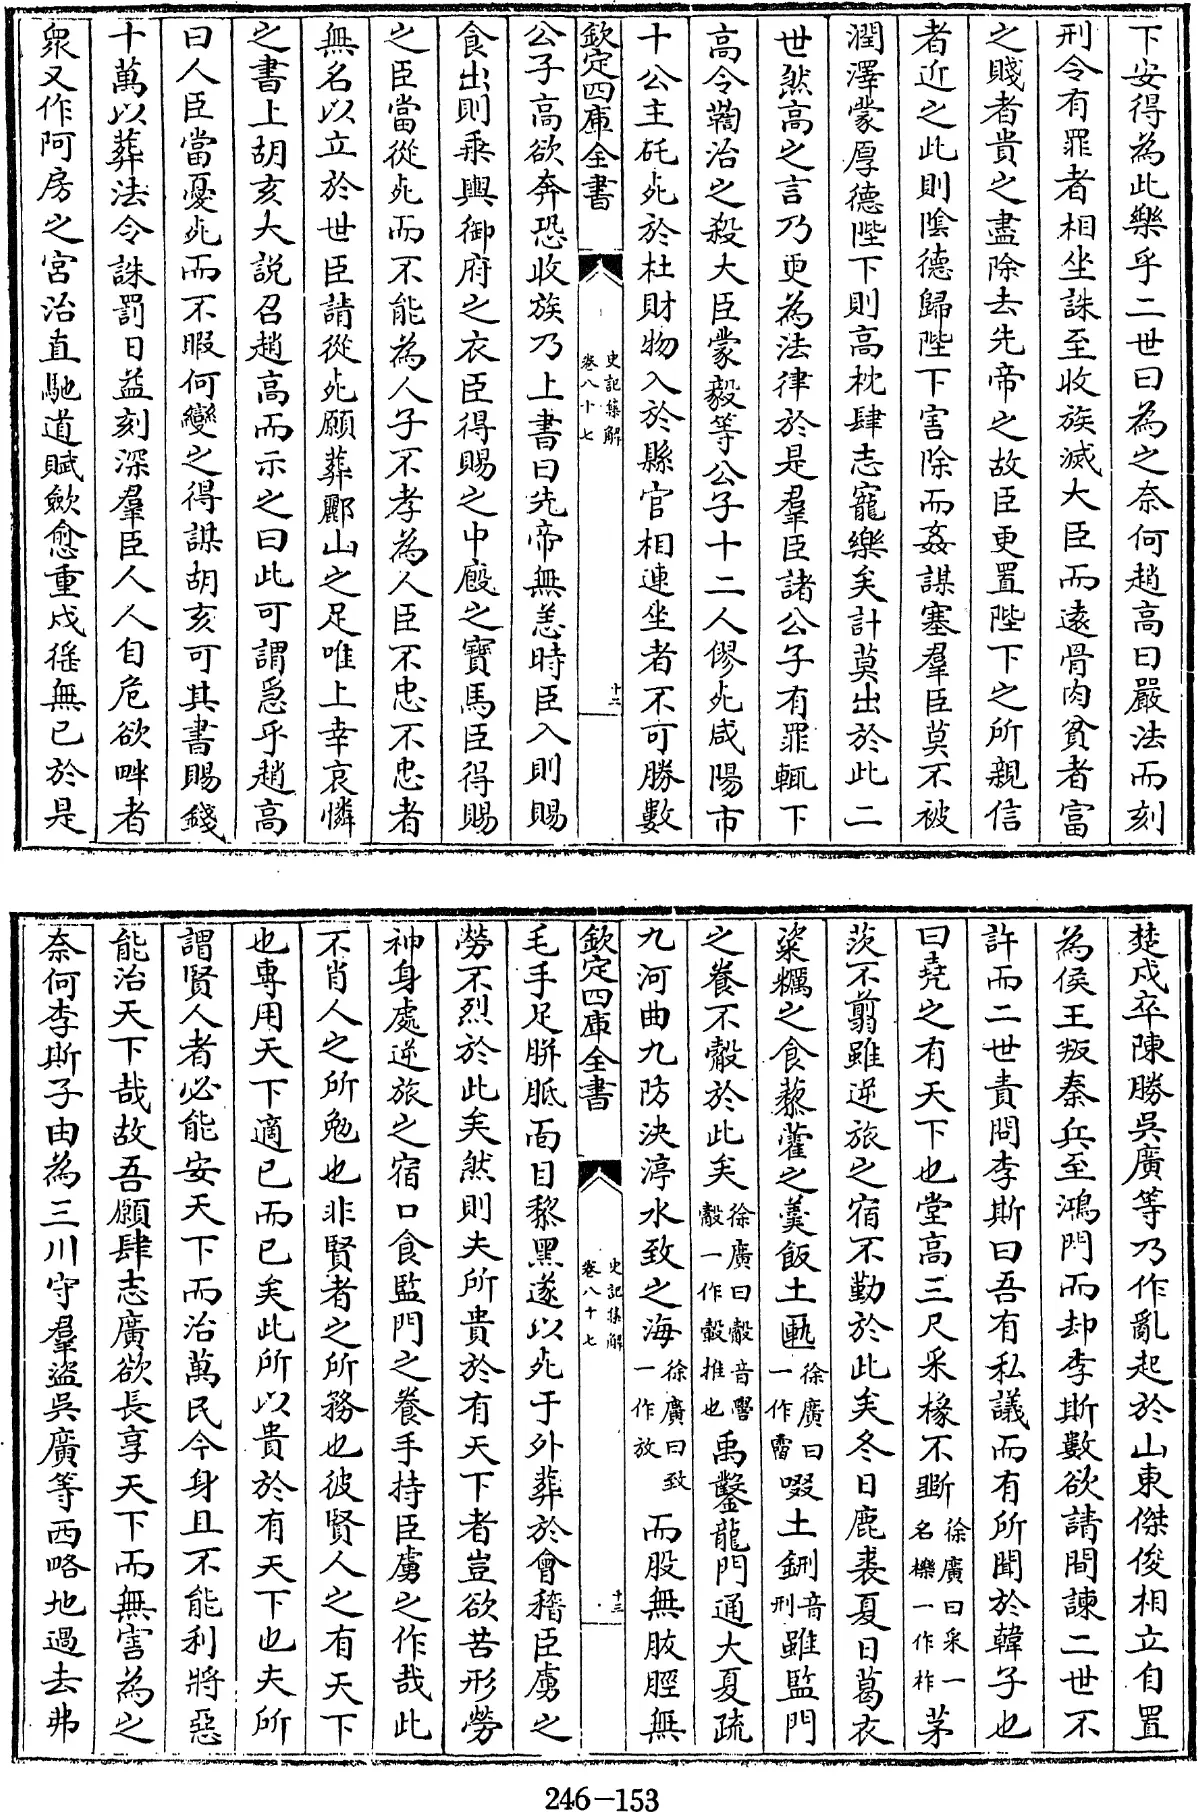 下安得為此樂乎二世曰為之奈何趙高曰嚴法而刻
刑令有罪者相坐誅至收族滅大臣而逺骨肉貧者富
之賤者貴之盡除去先帝之故臣更置陛下之所親信
者近之此則隂德歸陛下害除而姦謀塞羣臣莫不被
潤澤蒙厚德陛下則高枕肆志寵樂矣計莫出於此二
世然高之言乃更為法律於是羣臣諸公子有罪輒下
高令鞫治之殺大臣蒙毅等公子十二人僇死咸陽市
十公主矺死於杜財物入於縣官相連坐者不可勝數
欽定四庫全書
史記集解
卷八十七
十二
公子高欲奔恐收族乃上書曰先帝無恙時臣入則賜
食出則乗輿御府之衣臣得賜之中廄之寳馬臣得賜
之臣當從死而不能為人子不孝為人臣不忠不忠者
無名以立於世臣請從死願葬酈山之足唯上幸哀憐
之書上胡亥大說召趙高而示之曰此可謂急乎趙高
曰人臣當憂死而不暇何變之得謀胡亥可其書賜錢
十萬以葬法令誅罰日益刻深羣臣人人自危欲畔者
衆又作阿房之宮治直馳道賦斂愈重戍徭無已於是
楚戍卒陳勝吳廣等乃作亂起於山東傑俊相立自置
為侯王叛秦兵至鴻門而却李斯數欲請間諫二世不
許而二世責問李斯曰吾有私議而有所聞於韓子也
曰堯之有天下也堂髙三尺采椽不斲徐廣曰采一名櫟一作柞茅
茨不翦雖逆旅之宿不勤於此矣冬日鹿裘夏日葛衣
粢糲之食藜藿之羹飯土匭徐廣曰一作溜啜土鉶音刑雖監門
之養不觳於此矣徐廣曰觳音學觳一作㲉推也禹鑿龍門通大夏疏
九河曲九防決渟水致之海徐廣曰致一作放而股無胈脛無
欽定四庫全書
史記集解
卷八十七
十三
毛手足胼胝面目黎黑遂以死于外葬於會稽臣虜之
勞不烈於此矣然則夫所貴於有天下者豈欲苦形勞
神身處逆旅之宿口食監門之養手持臣虜之作哉此
不肖人之所勉也非賢者之所務也彼賢人之有天下
也專用天下適已而已矣此所以貴於有天下也夫所
謂賢人者必能安天下而治萬民今身且不能利將惡
能治天下哉故吾願肆志廣欲長享天下而無害為之
奈何李斯子由為三川守羣盜吳廣等西略地過去弗
246-153